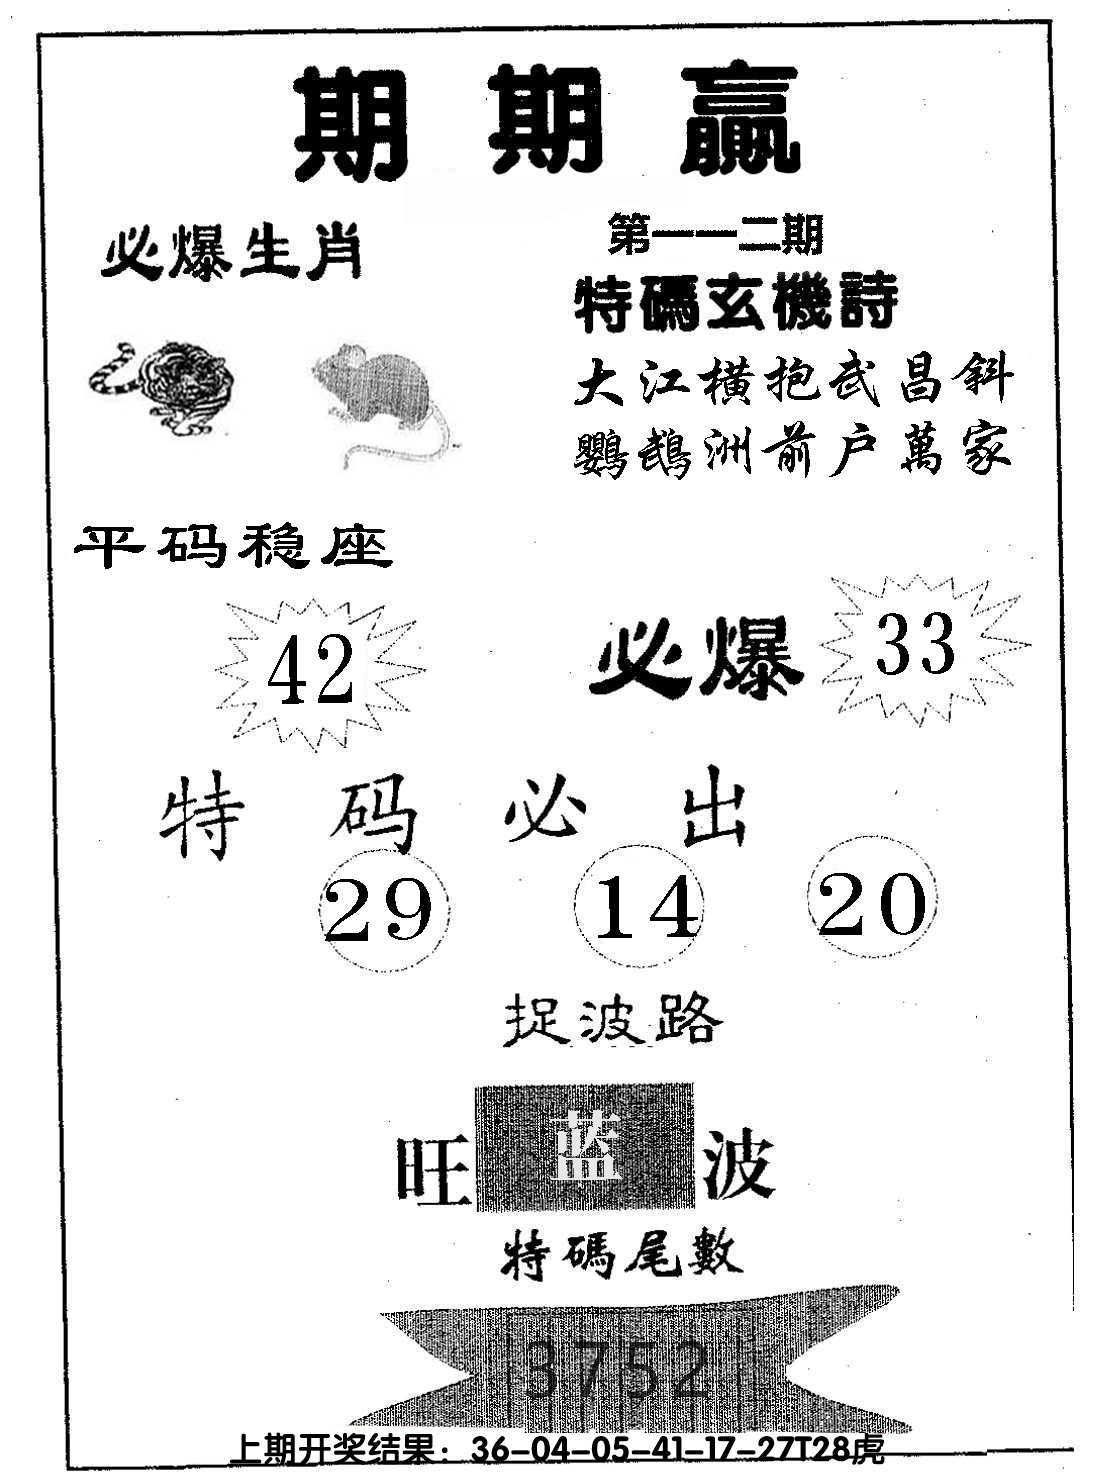 期期贏
必爆生肖
第一一二期
特碼玄機詩
大江橫抱武昌斜
鸚鵡洲前户萬家
平码稳座
42
必爆
33
特码必出
29 14 20
捉波路
旺 蓝 波
特碼尾數
3752
上期开奖结果：36-04-05-41-17-27T28虎